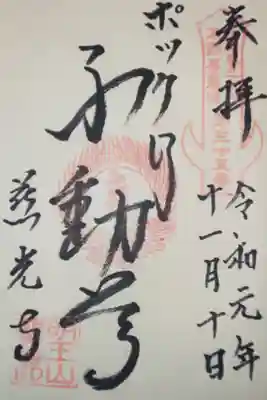 奉拝
令和元年
十一月十日
ポックリ
不動尊
慈光寺
明王山